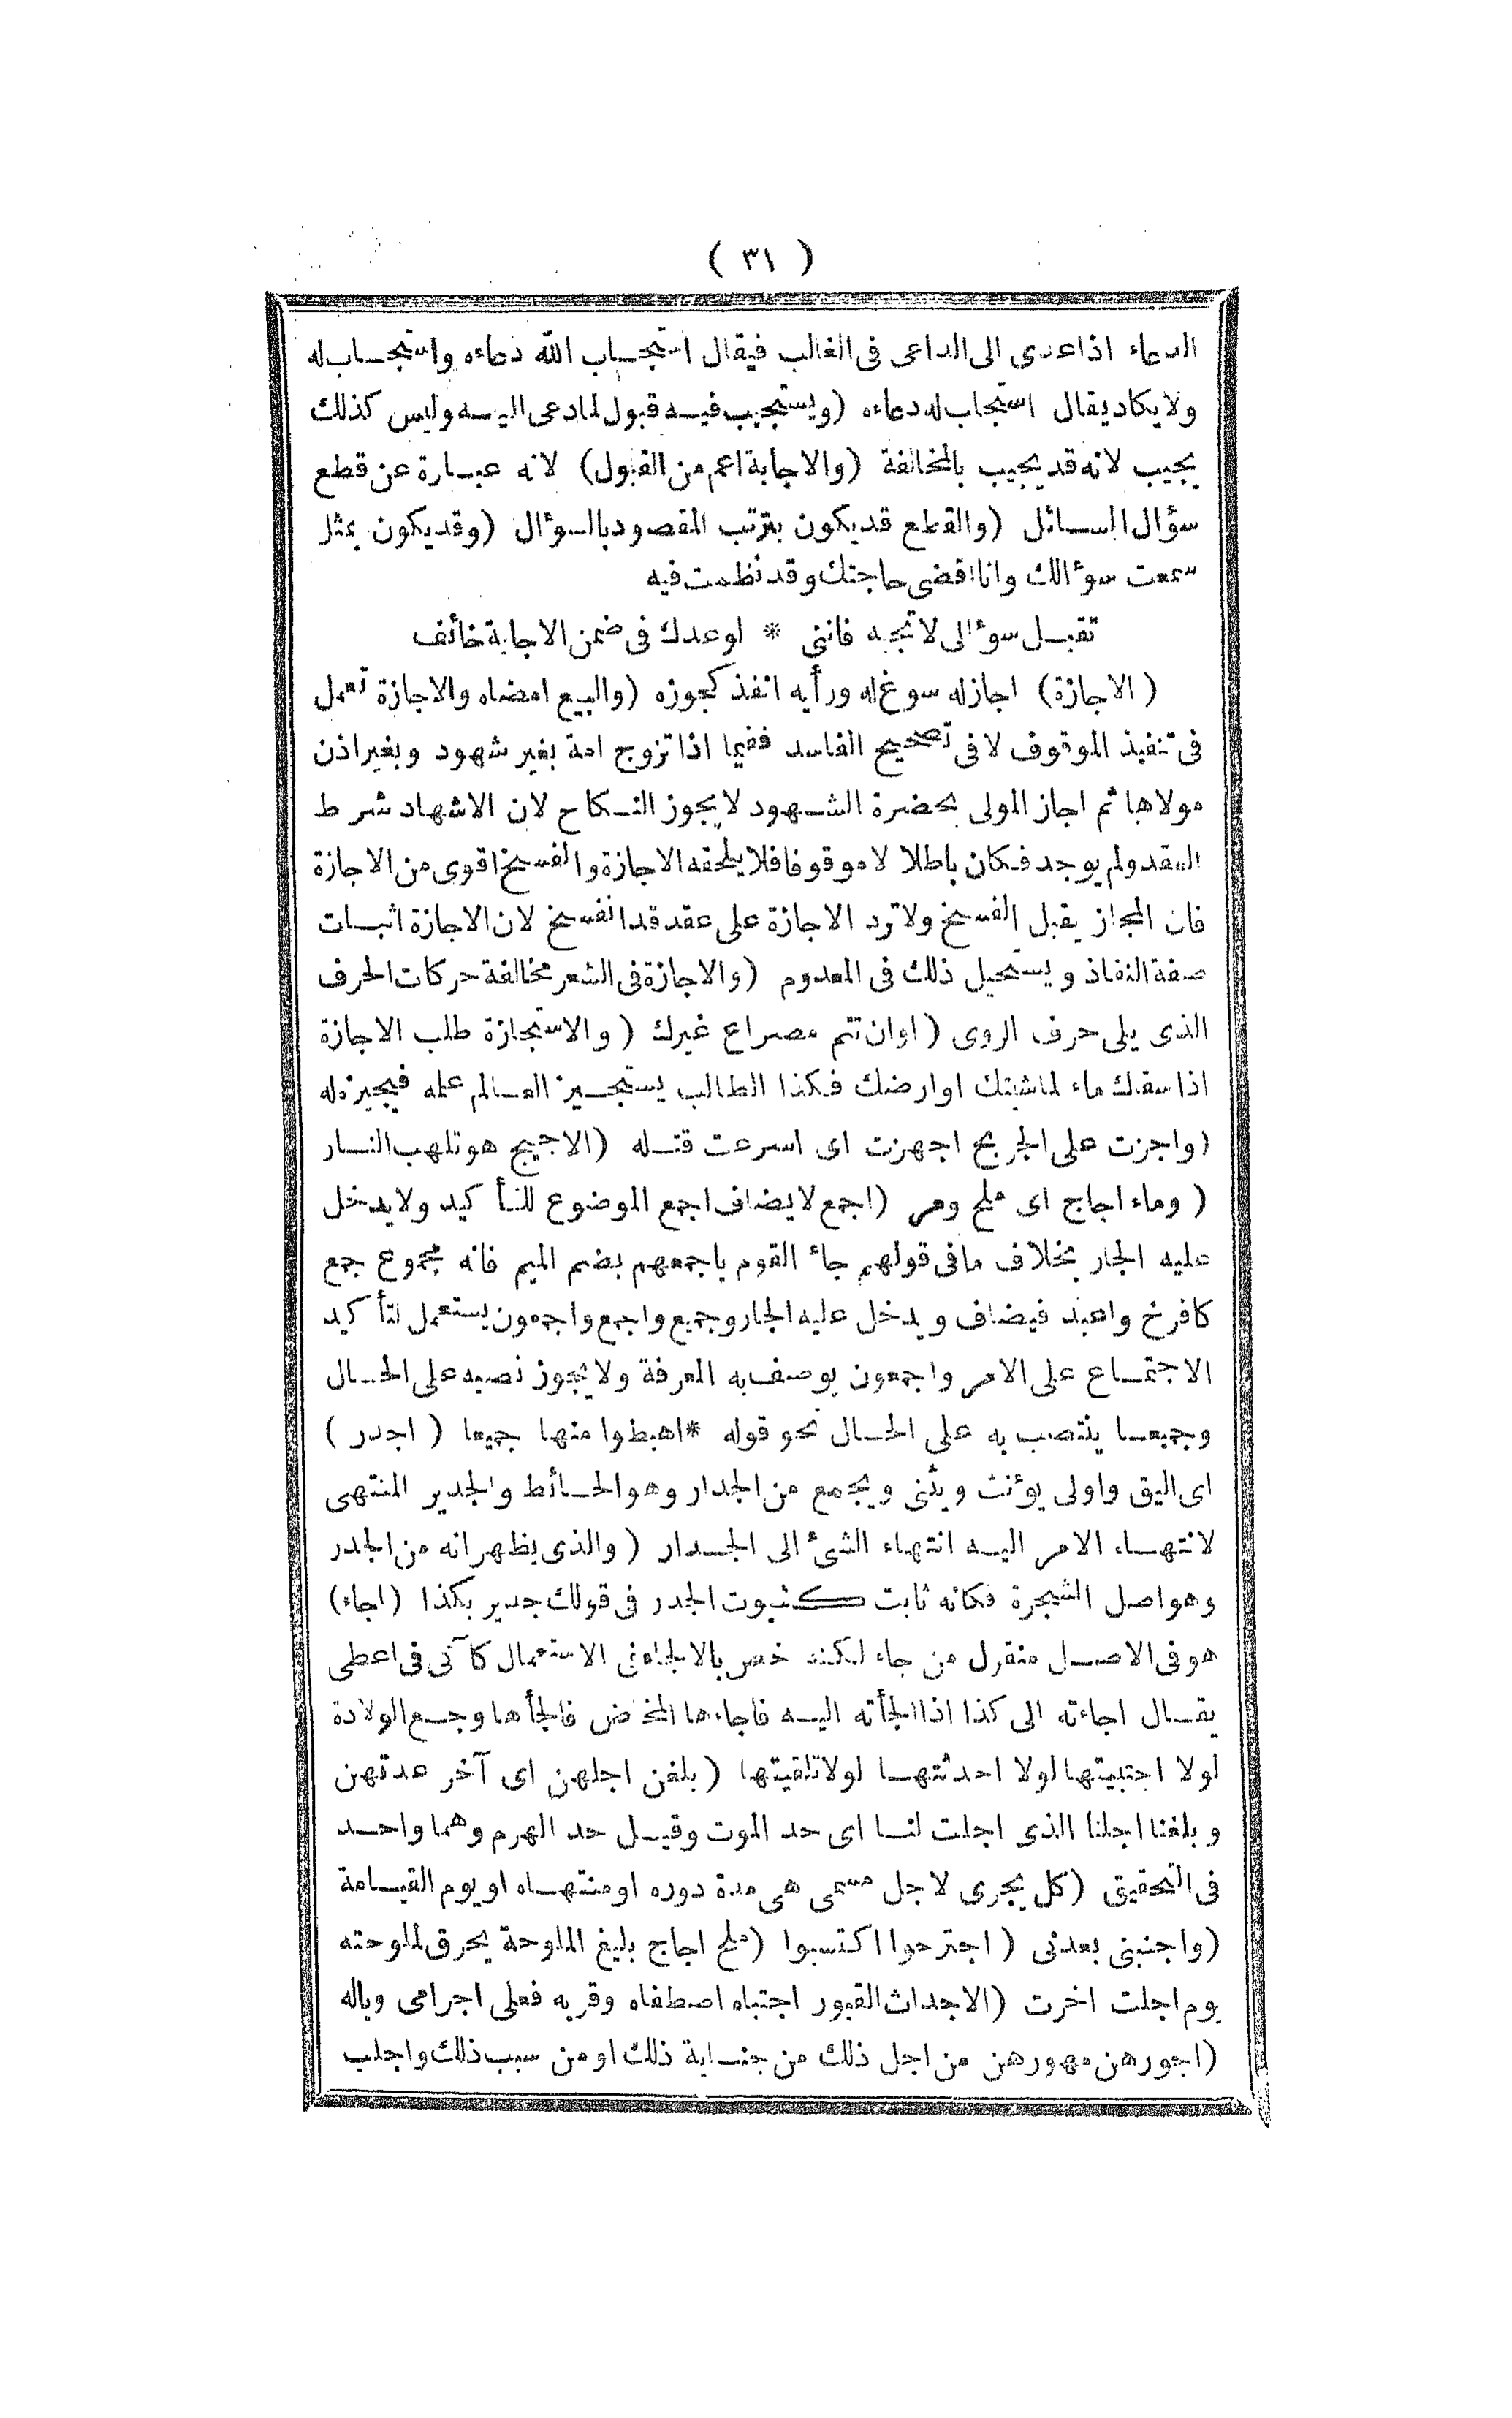 ( ٣١ )
الدعاء اذاعدى الى الداعى فى الغالب فيقال استجاب الله دعاءه واستجاب له
ولايكاد يقال استجاب له دعاءه (ويستجيب فيه قبول لمادعى اليه وليس كذلك
يجيب لانه قد يجيب بالمخالفة (والاجابة اعم من القبول) لانه عبارة عن قطع
سؤال السائل (والقطع قد يكون بترتب المقصود بالسوءال (وقد يكون بمثل
سمعت سوءالك وانااقضى حاجتك وقد نظمت فيه
تقبل سوءالى لاتجبه فاننى * لوعدك فى ضمن الاجابة خائف
(الاجازة) اجازله سوغ له ورأيه انفذ كجوزه (والبيع امضاه والاجازة تعمل
فى تنفيذ الموقوف لافى تصحيح الفاسد ففيما اذا تزوج امة بغير شهود وبغير اذن
مولاها ثم اجاز المولى بحضرة الشهود لايجوز النكاح لان الاشهاد شرط
العقد ولم يوجد فكان باطلا لاموقوفا فلا يلحقه الاجازة والفسخ اقوى من الاجازة
فان المجاز يقبل الفسخ ولاترد الاجازة على عقد قد انفسخ لان الاجازة اثبات
صفة النفاذ ويستحيل ذلك فى المعدوم (والاجازة فى الشعر مخالفة حركات الحرف
الذى يلى حرف الروى (اوان تتم مصراع غيرك (والاستجازة طلب الاجازة
اذا سقاك ماء لماشيتك اوارضك فكذا الطالب يستجيز العالم علمه فيجيزه له
(واجزت على الجريح اجهزت اى اسرعت قتله (الاجيج هو تلهب النار
(وماء اجاج اى ملح ومر (اجمع لايضاف اجمع الموضوع للتأكيد ولايدخل
عليه الجار بخلاف مافى قولهم جاء القوم باجمعهم بضم الميم فانه مجموع جمع
كافرخ واعبد فيضاف ويدخل عليه الجار وجميع واجمع واجمعون يستعمل لتأكيد
الاجتماع على الامر واجمعون يوصف به المعرفة ولايجوز نصبه على الحال
وجميعا ينتصب به على الحال نحو قوله *اهبطوا منها جميعا (اجدر)
اى اليق واولى يؤنث ويثنى ويجمع من الجدار وهو الحائط والجدير المنتهى
لانتهاء الامر اليه انتهاء الشئ الى الجدار (والذى يظهر انه من الجدر
وهواصل الشجرة فكانه ثابت كثبوت الجدر فى قولك جدير بكذا (اجاء)
هو فى الاصل منقول من جاء لكنه خص بالالجاء فى الاستعمال كآتى فى اعطى
يقال اجاءته الى كذا اذا الجأته اليه فاجاءها المخاض فالجأها وجع الولادة
لولا اجتبيتها لولا احدثتها لولا تلقيتها (بلغن اجلهن اى آخر عدتهن
وبلغنا اجلنا الذى اجلت لنا اى حد الموت وقيل حد الهرم وهما واحد
فى التحقيق (كل يجرى لاجل مسمى هى مدة دوره اومنتهاه اويوم القيامة
(واجنبنى بعدنى (اجترحوا اكتسبوا (ملح اجاج بليغ الملوحة يحرق لملوحته
يوم اجلت اخرت (الاجداث القبور اجتباه اصطفاه وقربه فعلى اجرامى وباله
(اجورهن مهورهن من اجل ذلك من جناية ذلك اومن سبب ذلك واجلب